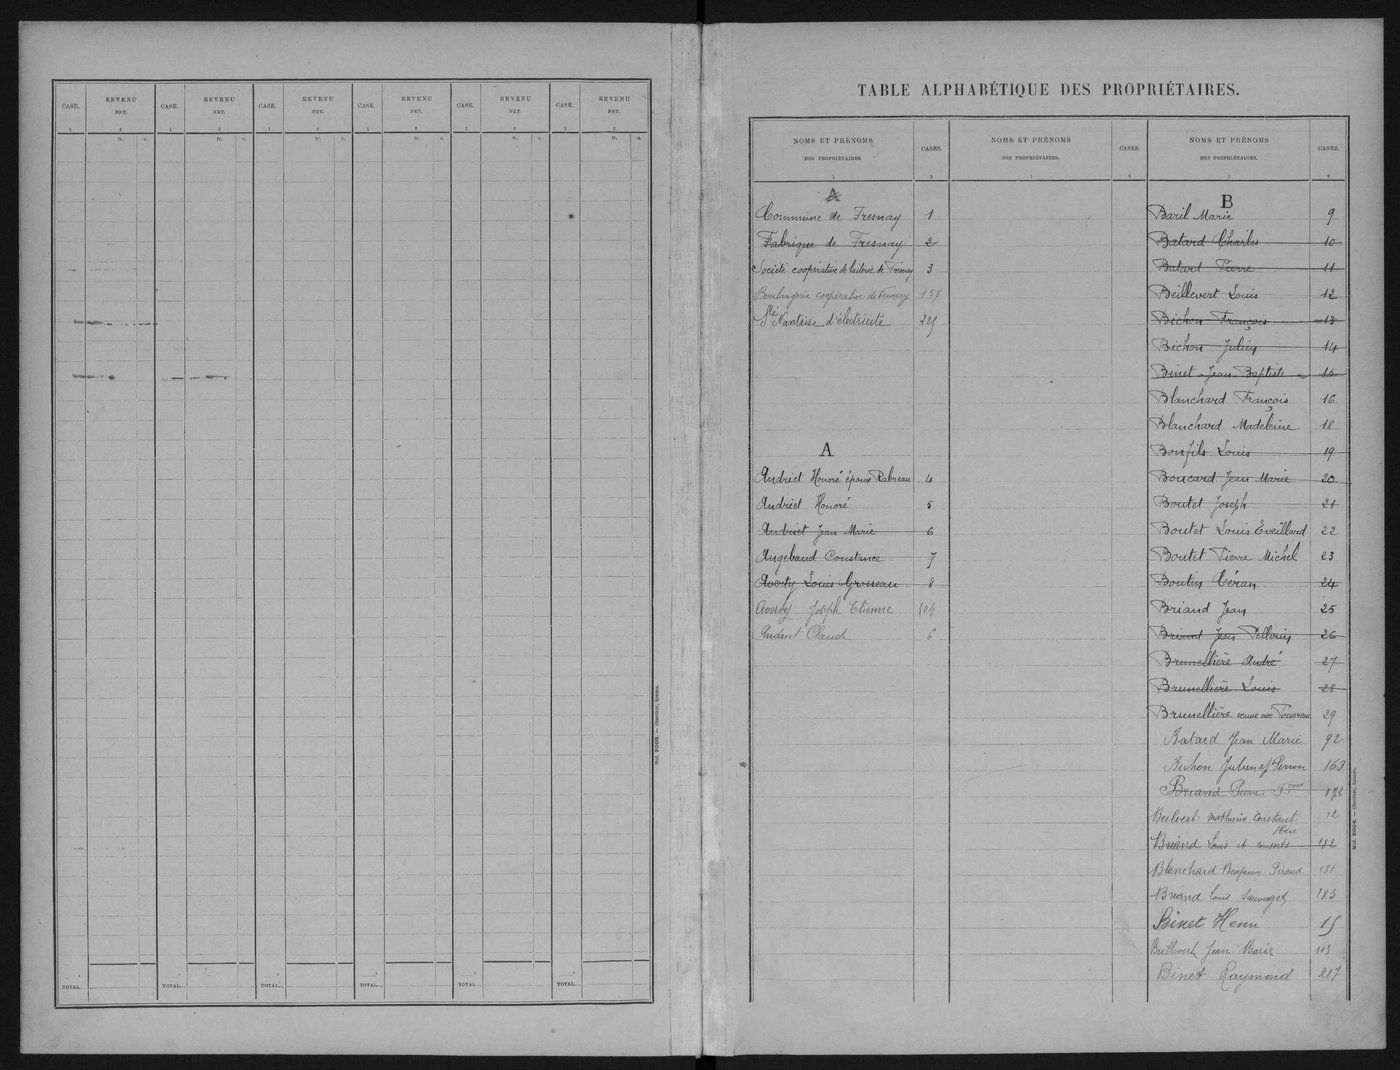 CASE. REVENU NET. CASE. REVENU NET. CASE. REVENU NET. CASE. REVENU NET. CASE. REVENU NET. CASE. REVENU NET.
1 2 1 2 1 2 1 2 1 2 1 2
fr. c. fr. c. fr. c. fr. c. fr. c. fr. c.
TOTAL.. TOTAL.. TOTAL.. TOTAL.. TOTAL.. TOTAL..
Mod. 2003. — Oberthur, Rennes.
TABLE ALPHABÉTIQUE DES PROPRIÉTAIRES.
NOMS ET PRÉNOMS DES PROPRIÉTAIRES. CASES. NOMS ET PRÉNOMS DES PROPRIÉTAIRES. CASES. NOMS ET PRÉNOMS DES PROPRIÉTAIRES. CASES.
1 2 1 2 1 2
A
Commune de Fresnay 1
Fabrique de Fresnay 2
Société coopérative de laiterie de Fresnay 3
Boulangerie coopérative de Fresnay 157
Sté Nantaise d'électricité 225
A
Andriet Honoré époux Rabreau 4
Andriet Honoré 5
Andriet Jean Marie 6
Angebaud Constance 7
Averty Louis Grosseau 8
Averty Joseph Etienne 104
Andriet Claud 6
B
Baril Marie 9
Batard Charles 10
Batard Pierre 11
Beillevert Louis 12
Bichon François 13
Bichon Julien 14
Binet Jean Baptiste 15
Blanchard François 16
Blanchard Madeleine 18
Bonfils Louis 19
Boucard Jean Marie 20
Boutet Joseph 21
Boutet Louis Eveillard 22
Boutet Pierre Michel 23
Boutin Téran 24
Briand Jean 25
Briand Jean Pellerin 26
Brunellière André 27
Brunellière Louis 28
Brunellière veuve née 29
Batard Jean Marie 92
Bichon Julien ép Perron 163
Briand Pierre Fçois 172
Beilvert Mathurin Constant 12
Briand Louis et consorts 182
Blanchard Benjamin Piraud 181
Briand Louis Sauvaget 183
Binet Henri 15
Beillevert Jean Marie 113
Binet Raymond 217
Mod. 2004. — Oberthur, Rennes.